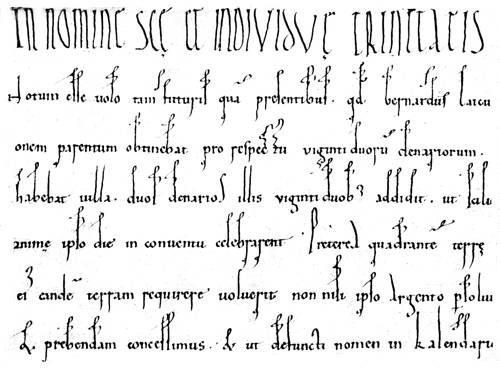 IN NOMINE SCĘ ET INDIVIDVĘ TRINITATIS
Notum esse volo tam futuris quā presentibus. qđ bernardus laicu
onem parentum obtinebat pro respectu viginti duorū denariorum.
habebat villa. duos denarios illis viginti duobȝ addidit. ut salu
animę ipso die in conventu celebrarent. Preterea quadrantē terrę
ei eandē terram requirere voluerit non nisi ipso argento psolu
& prebendam concessimus. & ut defuncti nomen in kalendariu